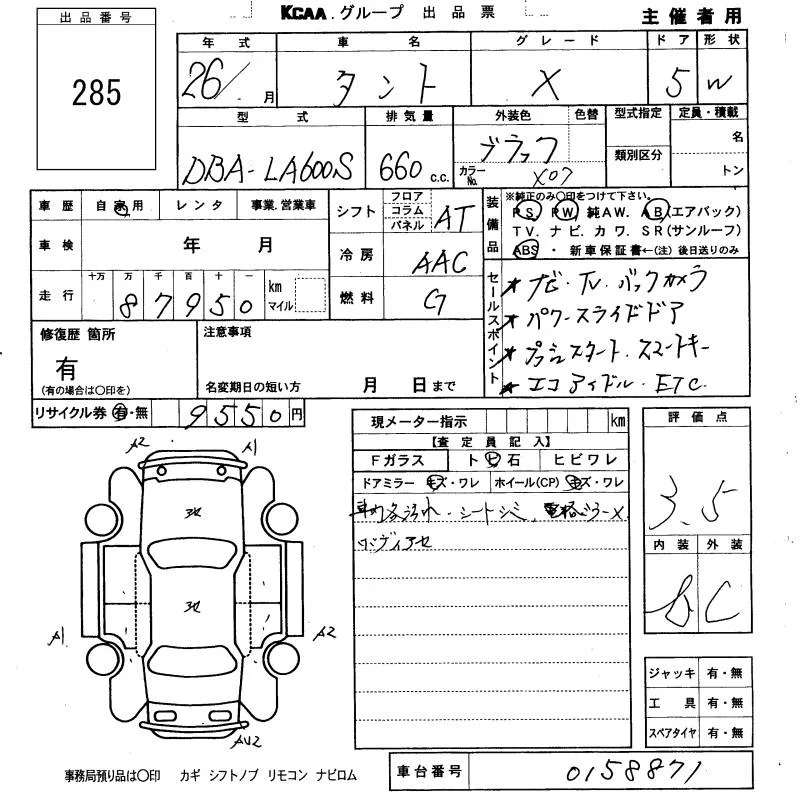 出品番号
285
KCAA.グループ 出品票
主催者用
年式 車名 グレード ドア 形状
26/ 月 タント X 5 W
型式 排気量 外装色 色替 型式指定 定員・積載
DBA-LA600S 660 c.c. ブラック 名
カラーNo. X07 類別区分 トン
車歴 自家用 レンタ 事業.営業車
車検 年 月
走行 十万 万 千 百 十 一
8 7 9 5 0 km マイル
シフト フロア コラム パネル AT
冷房 AAC
燃料 G
装備品
※純正のみ○印をつけて下さい。
PS PW 純AW. AB(エアバック)
TV. ナビ. カワ. SR(サンルーフ)
ABS ・ 新車保証書←(注)後日送りのみ
セールスポイント
★ ナビ・TV. バックカメラ
★ パワースライドドア
★ プッシュスタート. スマートキー
★ エコアイドル. ETC.
修復歴 箇所
有
(有の場合は○印を)
注意事項
名変期日の短い方 月 日まで
リサイクル券 有・無 9550円
現メーター指示 km
【査定員記入】
Fガラス ト ビ 石 ヒビワレ
ドアミラー キズ・ワレ ホイール(CP) キズ・ワレ
車内各汚れ・シートシミ、電格ミラーX
評価点
3.5
内装 外装
C
A2 A1
A1 A2
AU2
ジャッキ 有・無
工具 有・無
スペアタイヤ 有・無
事務局預り品は○印 カギ シフトノブ リモコン ナビロム
車台番号 0158871